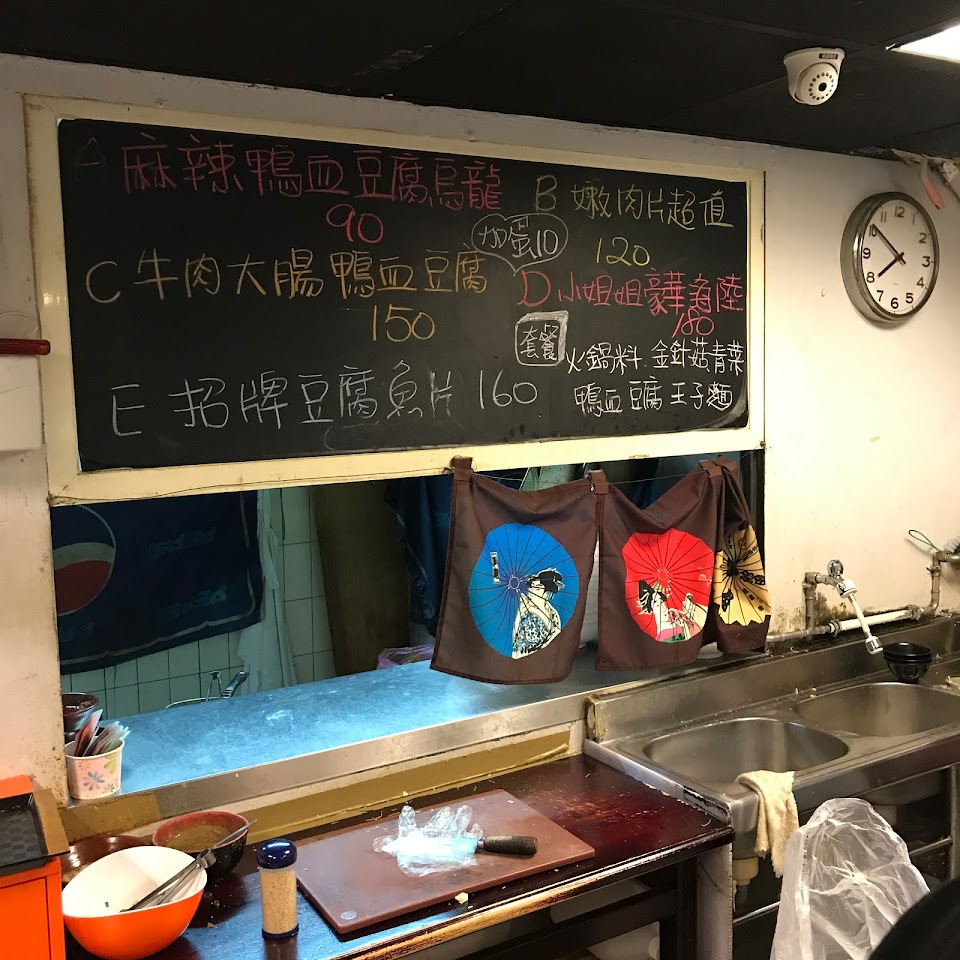 A 麻辣鴨血豆腐烏龍
90
B 嫩肉片超直
120
加蛋10
C 牛肉大腸鴨血豆腐
150
D 小姐姐豪華海陸
180
套餐
火鍋料.金針菇青菜
鴨血豆腐王子麵
E 招牌豆腐魚片 160
12
1
2
3
4
5
6
7
8
9
10
11